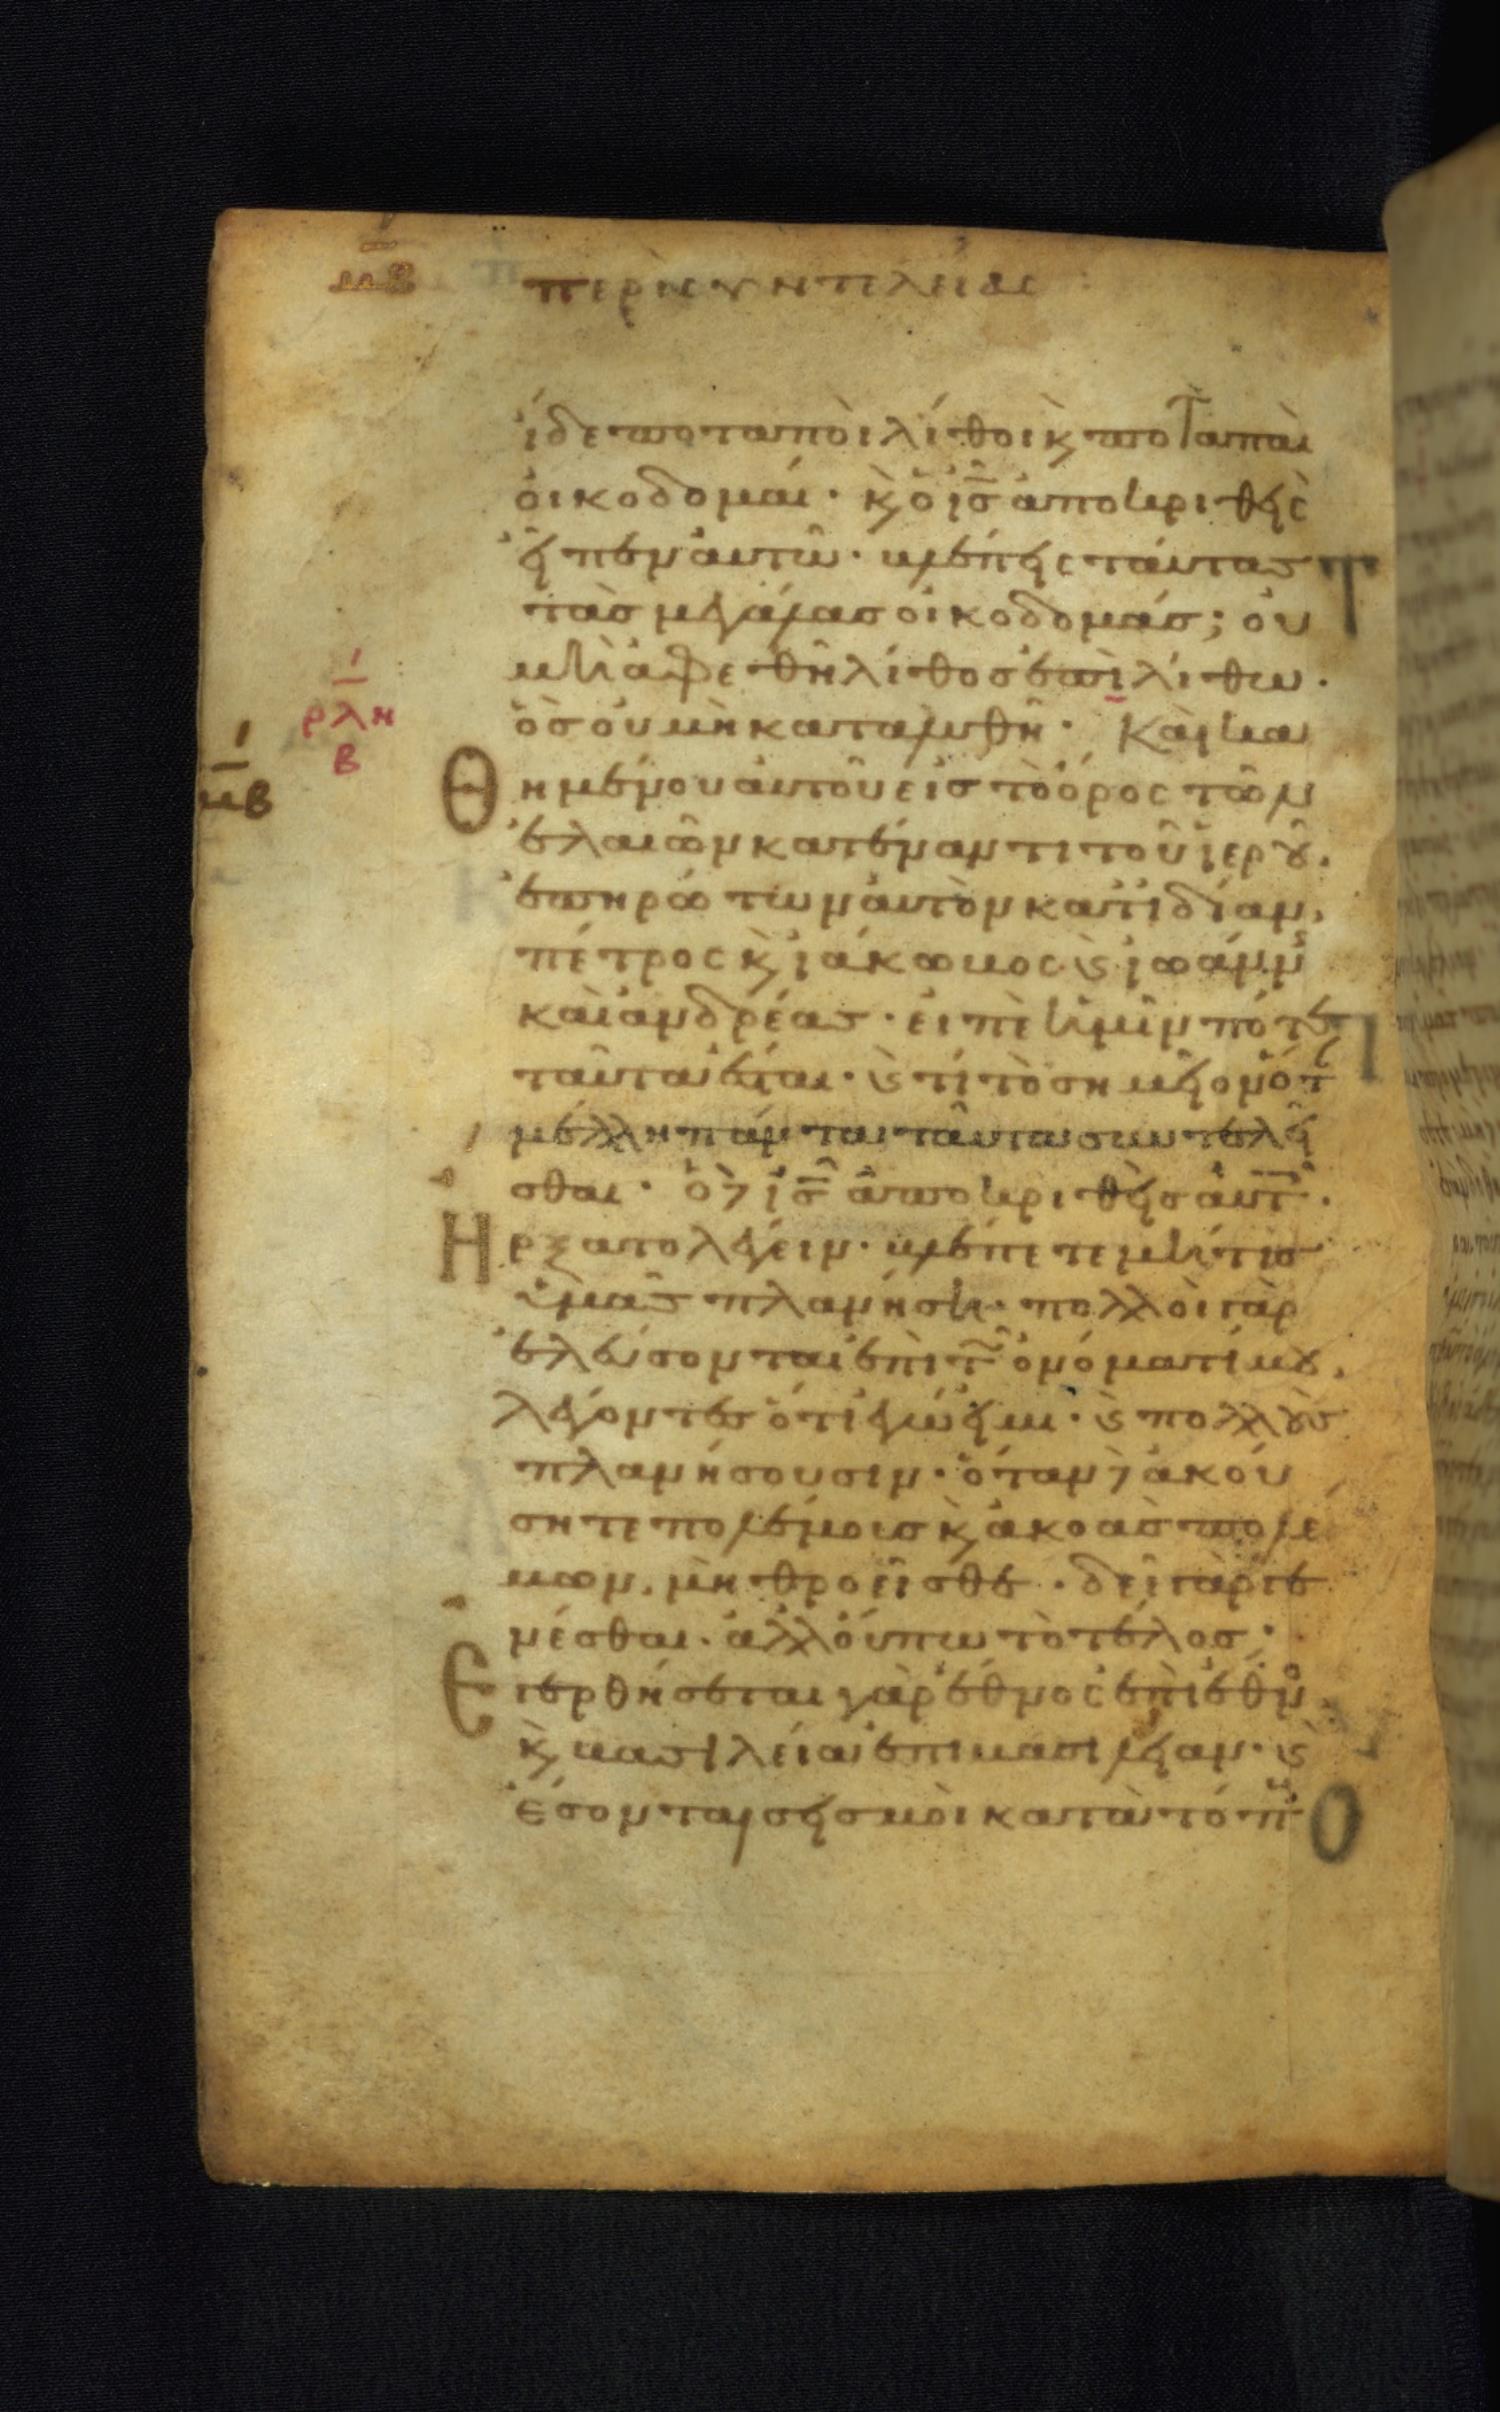 μβ περὶ συντελείας
ἴδε ποταποὶ λίθοι κ̀ ποταπαὶ
οἰκοδομαί· κ̀ ὁ ις̅ ἀποκριθεὶς
εἶπεν αὐτῶ· βλέπεις ταύτας
τὰς μεγάλας οἰκοδομάς; οὐ
μὴ ἀφεθῆ λίθος ἐπὶ λίθω·
ὃς οὐ μὴ καταλυθῆ· Καὶ κα
ρλη
β
μβ
Θημένου αὐτοῦ εἰς τὸ ὄρος τῶν
ἐλαιῶν κατέναντι τοῦ ἱεροῦ.
ἐπηρώτων αὐτὸν κατ' ἰδίαν,
πέτρος κ̀ ἰάκωβος ϛ ἰωάνν
καὶ ἀνδρέας· εἰπὲ ἡμῖν πότε
ταῦτα ἔσται· ϛ τί τὸ σημεῖον ὅτ
μέλλη πάντα ταῦτα συντελεῖ
σθαι· ὁ δ ις̅ ἀποκριθεὶς αὐτ·
Ηρξατο λέγειν· βλέπετε μή τις
ὑμᾶς πλανήση· πολλοὶ γὰρ
ἐλεύσονται ἐπὶ τ ὀνόματί μου,
λέγοντες ὅτι ἐγώ εἰμι· ϛ πολλοὺς
πλανήσουσιν· ὅταν δ ἀκού
σητε πολέμοις κ̀ ἀκοὰς πολέ
μων, μὴ θροεῖσθε· δεῖ γὰρ γε
νέσθαι· ἀλλ' οὔπω τὸ τέλος·
Εγερθήσεται γὰρ ἔθνος ἐπὶ ἔθν,
κ̀ βασιλεία ἐπὶ βασιλείαν· ϛ
ἔσονται σεισμοὶ κατὰ τόπ